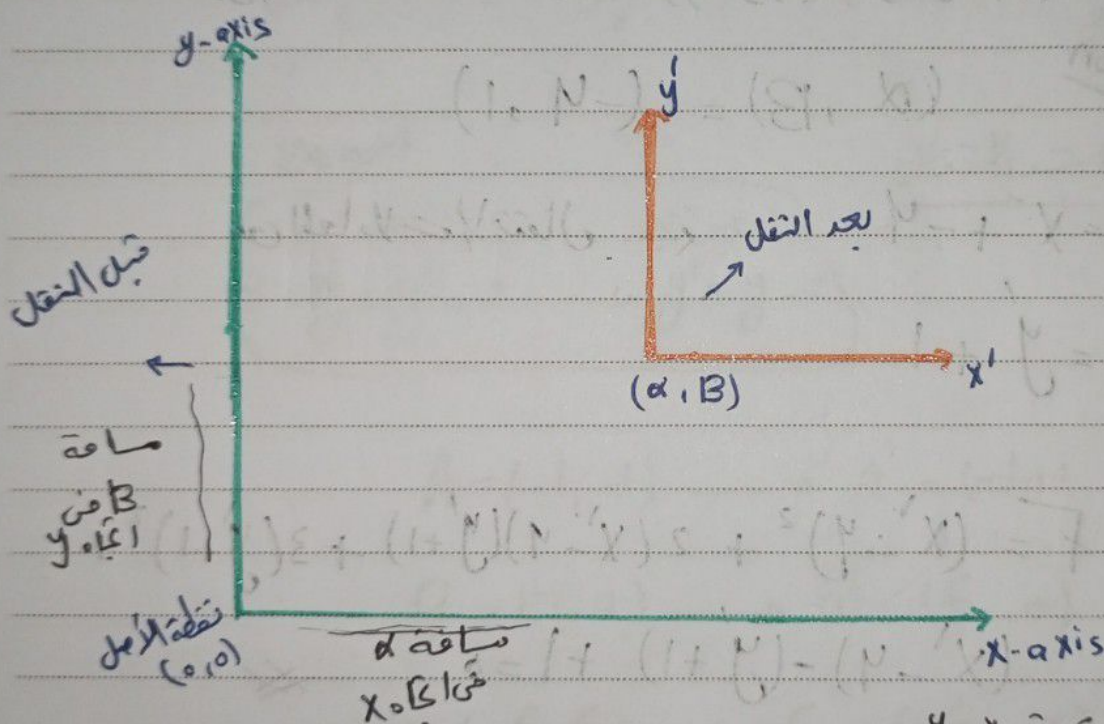 y-axis
y'
بعد النقل
قبل النقل
x'
(α, B)
مسافة
B في
اتجاه y
نقطة الأصل
(0,0)
مسافة α
في اتجاه x
x-axis